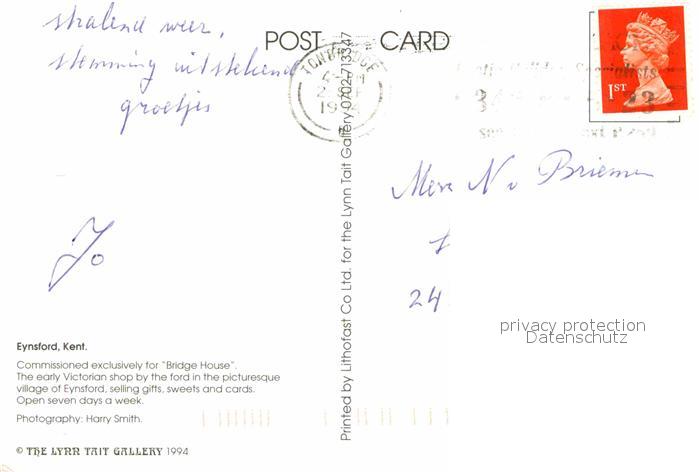 stralend weer,
stemming uitstekend
groetjes
Jo
POST CARD
TONBRIDGE
1994
1ST
Mevr N v
24
privacy protection
Datenschutz
Eynsford, Kent.
Commissioned exclusively for "Bridge House".
The early Victorian shop by the ford in the picturesque
village of Eynsford, selling gifts, sweets and cards.
Open seven days a week.
Photography: Harry Smith.
© THE LYNN TAIT GALLERY 1994
Printed by Lithofast Co Ltd. for the Lynn Tait Gallery 0702-713347